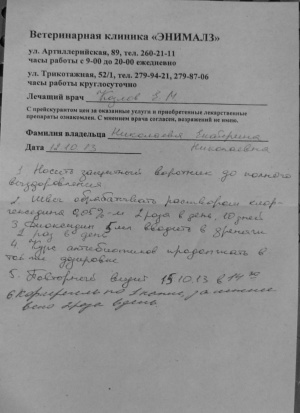 Ветеринарная клиника «ЭНИМАЛЗ»
ул. Артиллерийская, 89, тел. 260-21-11
часы работы с 9-00 до 20-00 ежедневно
ул. Трикотажная, 52/1, тел. 279-94-21, 279-87-06
часы работы круглосуточно
Лечащий врач Козлов Е.М
С прейскурантом цен за оказанные услуги и приобретенные лекарственные
препараты ознакомлен. С мнением врача согласен, возражений не имею.
Фамилия владельца Екатерина
Дата 12.10.13 Николаевна
1. Носить защитный воротник до полного
выздоровления
2. Швы обрабатывать раствором хлор-
гексидина 0,05%-м 2 раза в день, 10 дней
3. 5 мл вводить в дренажи
2 раз в день
4. Курс антибиотиков продолжать в
той же
5. Повторный визит 15.10.13 в 14
6. по 1 капле,
2 раза в день